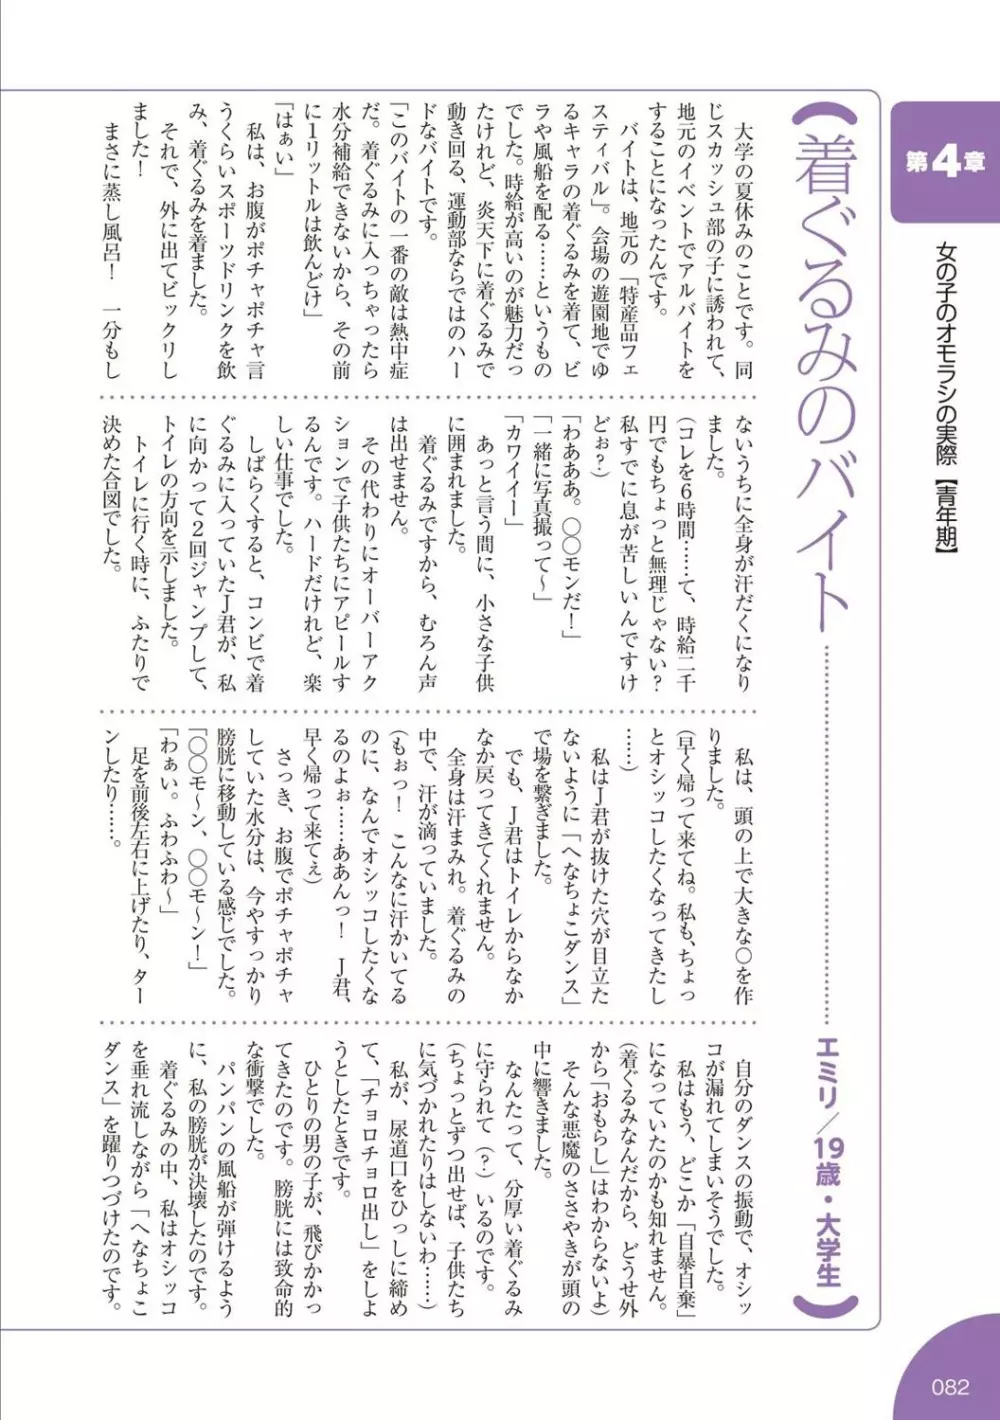 第4章
女の子のオモラシの実際【青年期】
(着ぐるみのバイト……エミリ／19歳・大学生)
大学の夏休みのことです。同
じスカッシュ部の子に誘われて、
地元のイベントでアルバイトを
することになったんです。
バイトは、地元の「特産品フェ
スティバル」。会場の遊園地でゆ
るキャラの着ぐるみを着て、ビ
ラや風船を配る……というもの
でした。時給が高いのが魅力だっ
たけれど、炎天下に着ぐるみで
動き回る、運動部ならではのハー
ドなバイトです。
「このバイトの一番の敵は熱中症
だ。着ぐるみに入っちゃったら
水分補給できないから、その前
に1リットルは飲んどけ」
「はぁい」
私は、お腹がポチャポチャ言
うくらいスポーツドリンクを飲
み、着ぐるみを着ました。
それで、外に出てビックリし
ました！
まさに蒸し風呂！　一分もし
ないうちに全身が汗だくになり
ました。
(コレを6時間……て、時給二千
円でもちょっと無理じゃない？
私すでに息が苦しいんですけ
どぉ？)
「わあああ。〇〇モンだ！」
「一緒に写真撮って〜」
「カワイイー」
あっと言う間に、小さな子供
に囲まれました。
着ぐるみですから、むろん声
は出せません。
その代わりにオーバーアク
ションで子供たちにアピールす
るんです。ハードだけれど、楽
しい仕事でした。
しばらくすると、コンビで着
ぐるみに入っていたJ君が、私
に向かって2回ジャンプして、
トイレの方向を示しました。
トイレに行く時に、ふたりで
決めた合図でした。
私は、頭の上で大きな〇を作
りました。
(早く帰って来てね。私も、ちょっ
とオシッコしたくなってきたし
……)
私はJ君が抜けた穴が目立た
ないように「へなちょこダンス」
で場を繋ぎました。
でも、J君はトイレからなか
なか戻ってきてくれません。
全身は汗まみれ。着ぐるみの
中で、汗が滴っていました。
(もぉっ！　こんなに汗かいてる
のに、なんでオシッコしたくな
るのよぉ……ああんっ！　J君、
早く帰って来てぇ)
さっき、お腹でポチャポチャ
していた水分は、今やすっかり
膀胱に移動している感じでした。
「〇〇モ〜ン、〇〇モ〜ン！」
「わぁい。ふわふわ〜」
足を前後左右に上げたり、ター
ンしたり……。
自分のダンスの振動で、オシッ
コが漏れてしまいそうでした。
私はもう、どこか「自暴自棄」
になっていたのかも知れません。
(着ぐるみなんだから、どうせ外
から「おもらし」はわからないよ)
そんな悪魔のささやきが頭の
中に響きました。
なんたって、分厚い着ぐるみ
に守られて(？)いるのです。
(ちょっとずつ出せば、子供たち
に気づかれたりはしないわ……)
私が、尿道口をひっしに締め
て、「チョロチョロ出し」をしよ
うとしたときです。
ひとりの男の子が、飛びかかっ
てきたのです。膀胱には致命的
な衝撃でした。
パンパンの風船が弾けるよう
に、私の膀胱が決壊したのです。
着ぐるみの中、私はオシッコ
を垂れ流しながら「へなちょこ
ダンス」を躍りつづけたのです。
082